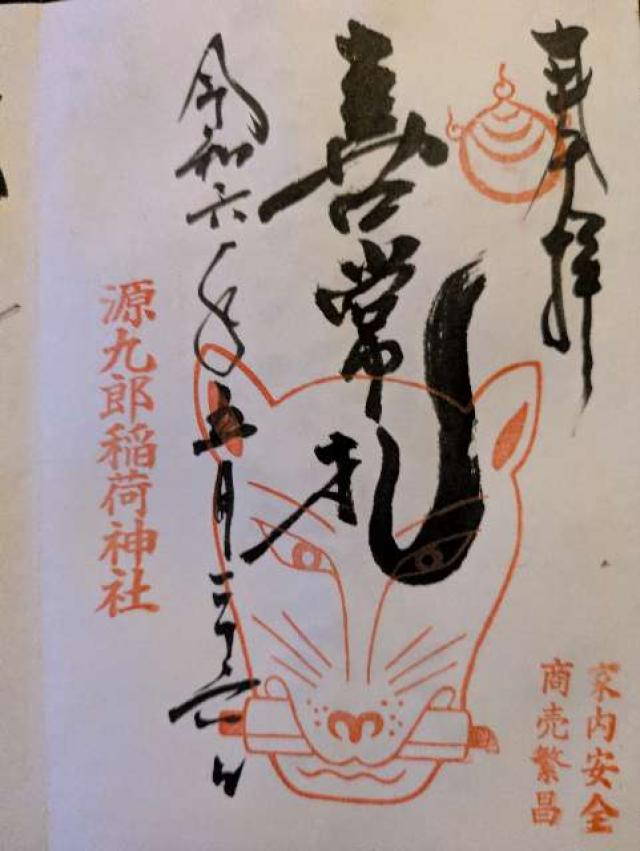 奉拝
喜常札
令和六年五月二十六日
源九郎稲荷神社
家内安全
商売繁昌